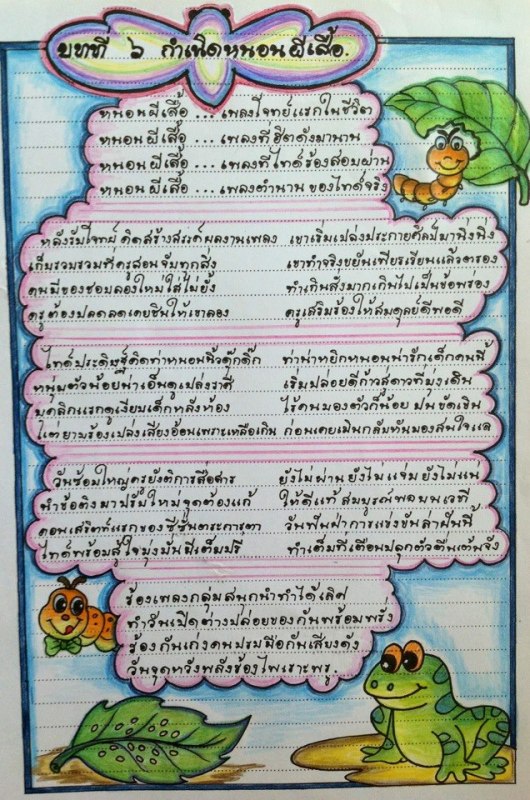 บทที่ ๖ กำเนิดหนอนผีเสื้อ.
หนอนผีเสื้อ ... เพลงโจทย์แรกในชีวิต
หนอนผีเสื้อ ... เพลงที่ฮิตดังมานาน
หนอนผีเสื้อ ... เพลงที่ไทด์ร้องสอบผ่าน
หนอนผีเสื้อ ... เพลงตำนาน ของไทด์จริง
หลังรับโจทย์ คิดสร้างสรรค์ผลงานเพลง เขาเริ่มเปล่งประกายศิลป์มานิ่งนิ่ง
เก็บรวบรวมที่ครูสอนจับทุกสิ่ง เขาทำจริงขยันเพียรเรียนแล้วตรอง
คนนี้ของชอบลองใหม่ใส่ไม่ยั้ง ทำเกินสั่งมากเกินไปเป็นข้อพร่อง
ครูต้องปลดลดเคยชินให้เขาลอง ครูเสริมร้องให้สมดุลย์ดีพอดี
ไทด์ประดิษฐ์คิดท่าหนอนนิ้วดุ๊กดิ๊ก ท่าน่าหยิกหนอนน่ารักเด็กคนนี้
หนุ่มตัวน้อยน่าเอ็นดูเปล่งราศี เริ่มปล่อยดีก้าวสู่ดาวที่มุ่งเดิน
บุคลิกแรกดูเงียบเด็กหลังห้อง ไร้คนมองตัวก็น้อย ปนขัดเขิน
แต่ยามร้องเปล่งเสียงอ้อนเพราะเหลือเกิน ก่อนเคยเมินกลับหันมองสนใจแล
วันซ้อมใหญ่ครูยังติการสื่อสาร ยังไม่ผ่านยังไม่แจ่มยังไม่แน่
นำข้อติงมาปรับใหม่จุดต้องแก้ ให้ดีแท้สมบูรณ์พลบนเวที
คอนเสิร์ตแรกของซีซั่นตระการตา วันฟันฝ่าการแข่งขันล่าฝันนี้
ไทด์พร้อมสู้ใจมุ่งมั่นมีเต็มปรี่ ทำเต็มที่เตือนปลุกตัวตื่นเต้นจัง
ร้องเพลงกลุ่มสนุกนำทำได้เลิศ
ทำวันเปิดต่างปล่อยของกันพร้อมพรั่ง
ร้องกันเก่งคนปรบมือกันเสียงดัง
วันจุดหวังพลังร้องไพเราะพรู